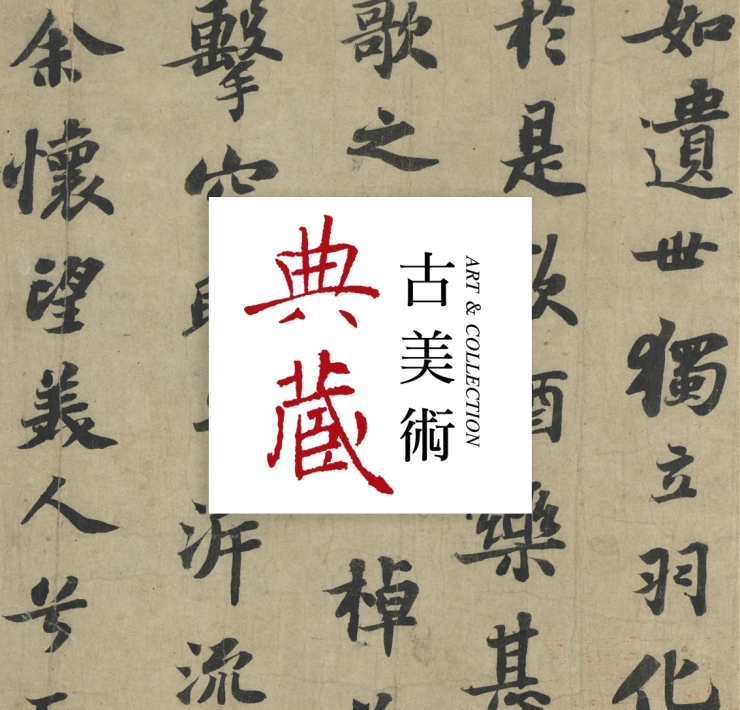 如遺世獨立羽化
於是飲酒樂甚
歌之
棹
擊空
泝流
余懷望美人兮
典藏
古美術
ART & COLLECTION